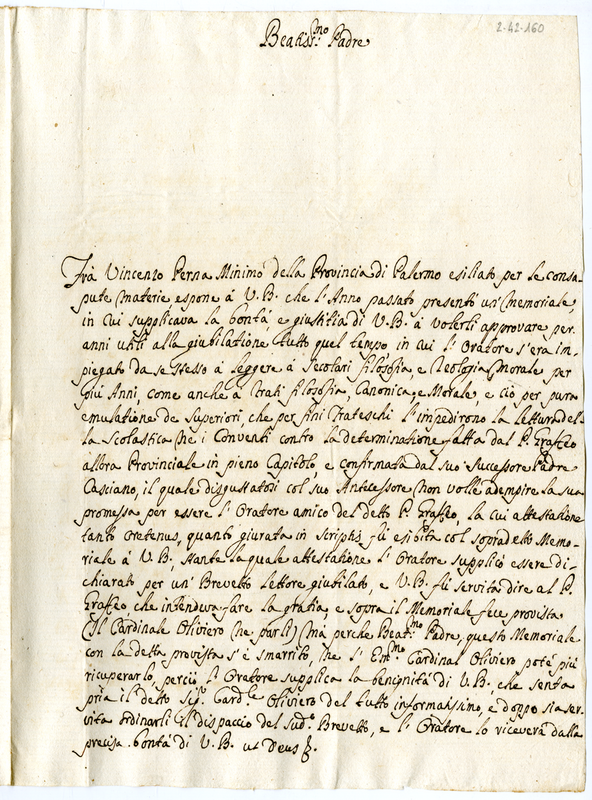 2-42-160
Beatiss.mo Padre
Frà Vincenzo Perna Minimo della Provincia di Palermo esiliato per le consa-
pute materie espone à V.B. che l'Anno passato presentò un Memoriale,
in cui supplicava la bontà, e giustitia di V.B. à volerli approvare per
anni utili alla giubilatione tutto quel tempo in cui l'Oratore s'era im-
piegato da se stesso à leggere à Secolari filosofia, e Teologia Morale per
più Anni, come anche à Frati filosofia, Canonica, e Morale, e ciò per pura
emulatione de Superiori, che per fini Frateschi l'impedirono la lettura del-
la Scolastica ne i Conventi contro la determinatione fatta dal P. Graffeo
allora Provinciale in pieno Capitolo, e confirmata dal suo Successore Padre
Casciano, il quale disgustatosi col suo Antecessore non volle adempire la sua
promessa per essere l'Oratore amico del detto P. Graffeo, la cui attestatione
tanto oretenus, quanto giurata in scriptis fù esibita col sopradetto Memo-
riale à V.B., stante la quale attestatione l'Oratore supplicò essere di-
chiarato per un' Brevetto lettore giubilato, e V.B. fù servita dire al P.
Graffeo, che intendeva fare la gratia, e sopra il Memoriale fece provista
(Il Cardinale Oliviero ne parli) mà perche Beat.mo Padre, questo Memoriale
con la detta provista s'è smarrito, ne l'Em.mo Cardinal Oliviero potè più
ricuperarlo, perciò l'Oratore supplica la benignità di V.B. che senta
pria il detto Sig.r Card.le Oliviero del tutto informatissimo, e doppo sia ser-
vita ordinarli il dispaccio del sud.o Brevetto, e l'Oratore lo riceverà dalla
precisa bontà di V.B. ut Deus